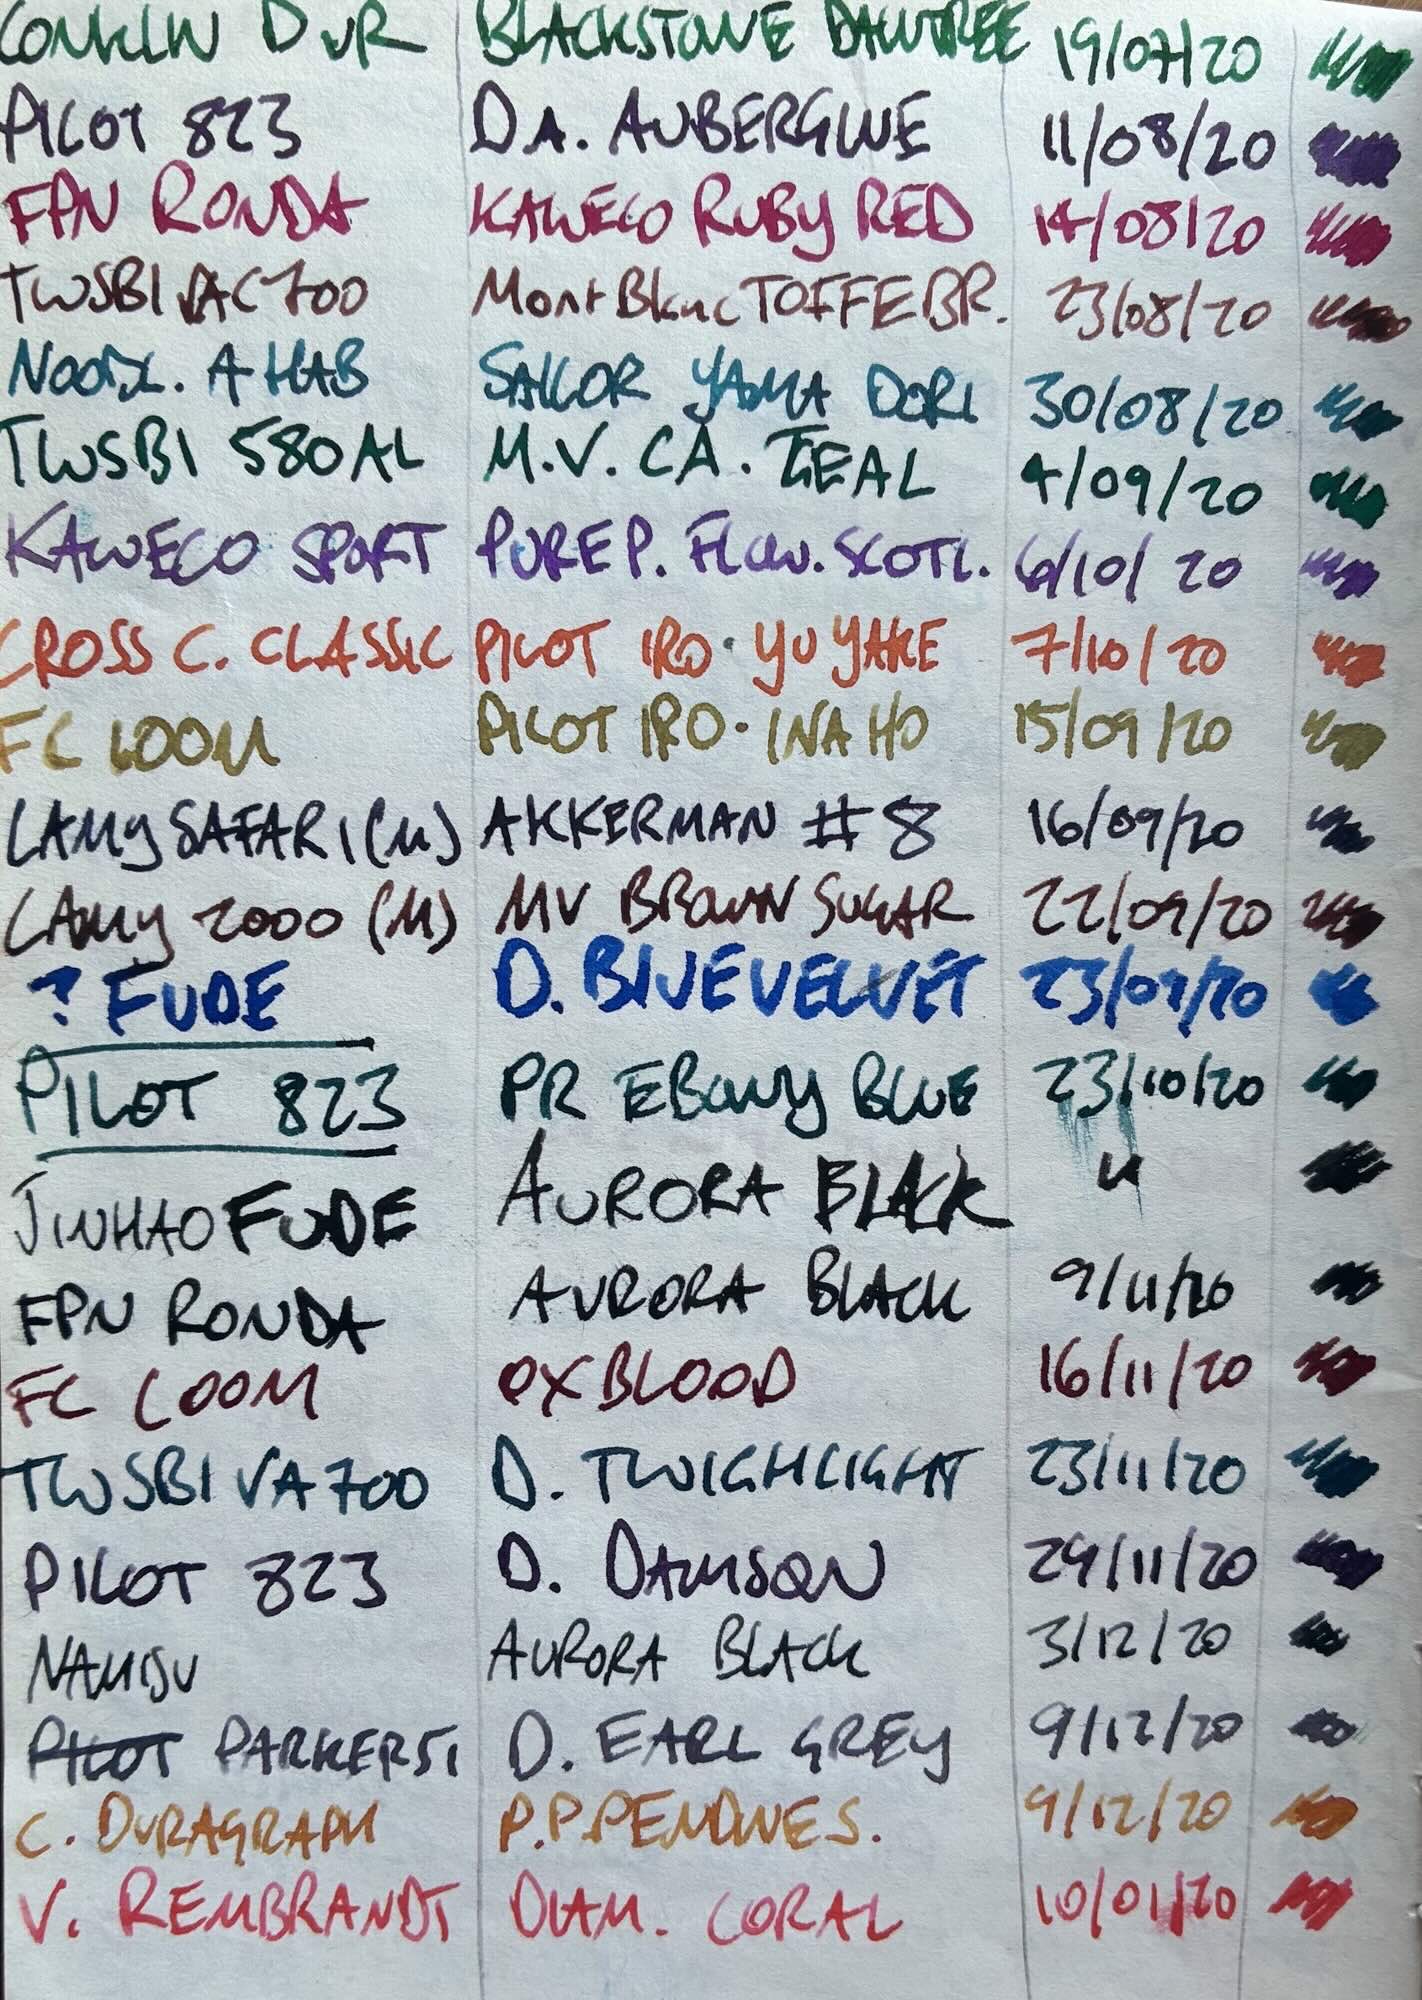 CONKLIN DUR BLACKSTONE DAINTREE 19/07/20
PILOT 823 D.A. AUBERGINE 11/08/20
FPN RONDA KAWECO RUBY RED 14/08/20
TWSBI VAC 700 MontBlanc TOFFEE BR. 23/08/20
A HAB SAILOR YAMA DORI 30/08/20
TWSBI 580 AL M.V. CA. TEAL 4/09/20
KAWECO SPORT PURE P. FLOW. SCOTL. 6/10/20
CROSS C. CLASSIC PILOT IRO · YU YAKE 7/10/20
FC LOOM PILOT IRO · INA HO 15/09/20
LAMY SAFARI (M) AKKERMAN # 8 16/09/20
LAMY 2000 (M) MV BROWN SUGAR 22/09/20
? FUDE D. BLUE VELVET 23/09/20
PILOT 823 PR EBONY BLUE 23/10/20
JINHAO FUDE AURORA BLACK "
FPN RONDA AURORA BLACK 9/11/20
FC LOOM OXBLOOD 16/11/20
TWSBI VA 700 D. TWIGHLIGHT 23/11/20
PILOT 823 D. DAMSON 29/11/20
NAMISU AURORA BLACK 3/12/20
PILOT PARKER 51 D. EARL GREY 9/12/20
C. DURAGRAPH P.P. PENDINE S. 9/12/20
V. REMBRANDT DIAM. CORAL 10/01/20